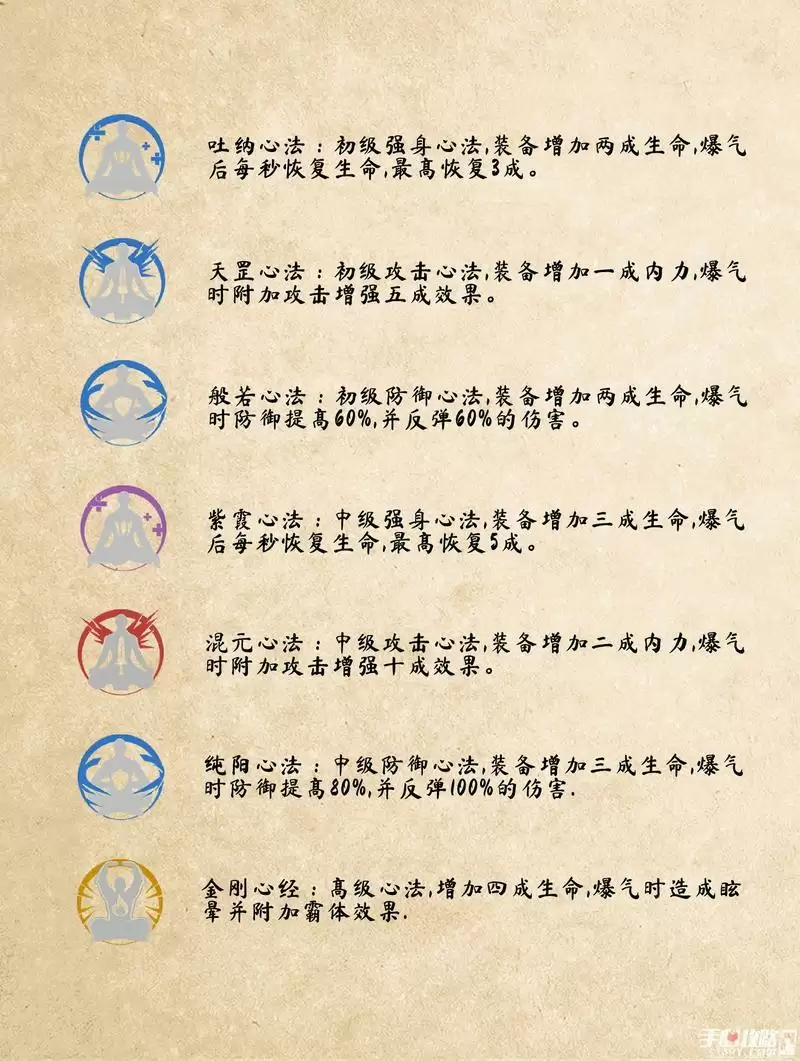 吐纳心法：初级强身心法,装备增加两成生命,爆气
后每秒恢复生命,最高恢复3成。
天罡心法：初级攻击心法,装备增加一成内力,爆气
时附加攻击增强五成效果。
般若心法：初级防御心法,装备增加两成生命,爆气
时防御提高60%,并反弹60%的伤害。
紫霞心法：中级强身心法,装备增加三成生命,爆气
后每秒恢复生命,最高恢复5成。
混元心法：中级攻击心法,装备增加二成内力,爆气
时附加攻击增强十成效果。
纯阳心法：中级防御心法,装备增加三成生命,爆气
时防御提高80%,并反弹100%的伤害.
金刚心经：高级心法,增加四成生命,爆气时造成眩
晕并附加霸体效果.